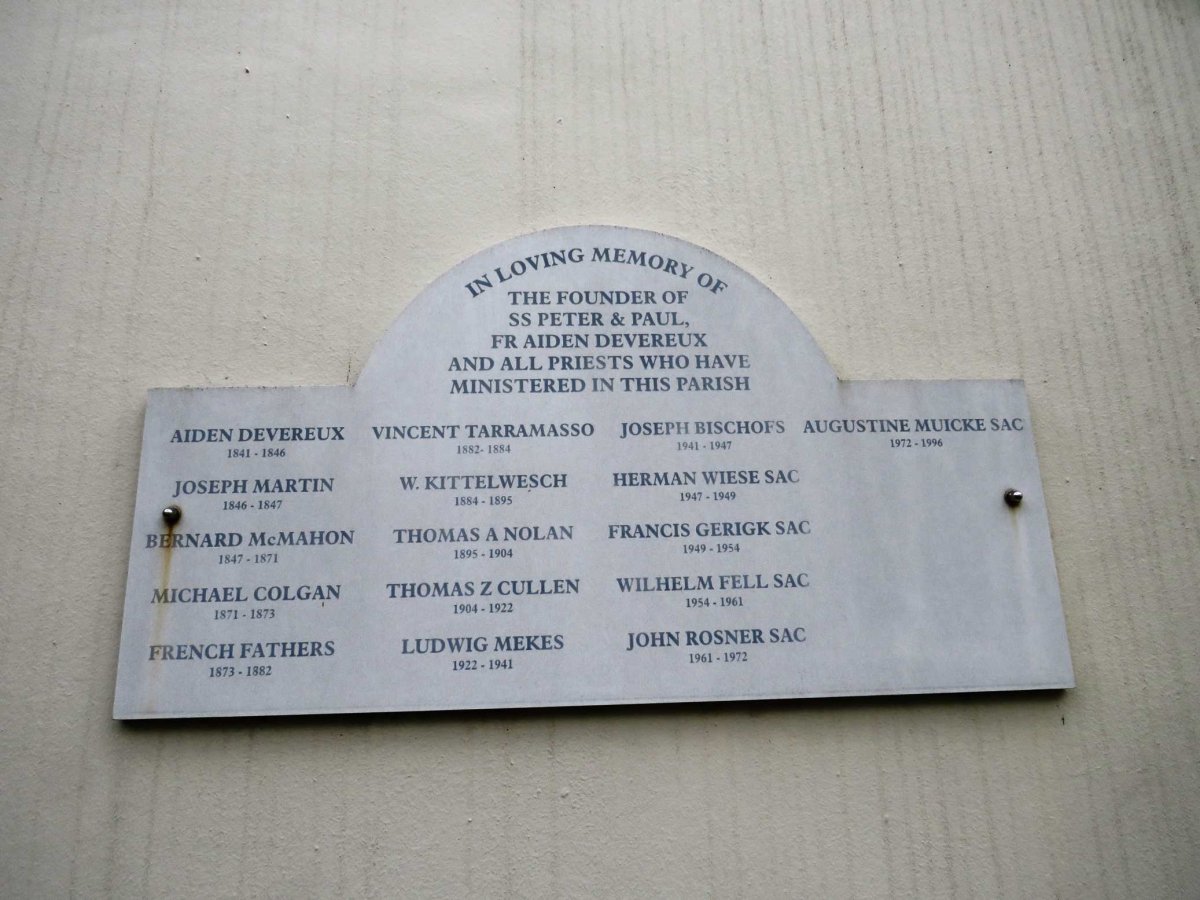 IN LOVING MEMORY OF
THE FOUNDER OF
SS PETER & PAUL,
FR AIDEN DEVEREUX
AND ALL PRIESTS WHO HAVE
MINISTERED IN THIS PARISH
AIDEN DEVEREUX
1841 - 1846
JOSEPH MARTIN
1846 - 1847
BERNARD McMAHON
1847 - 1871
MICHAEL COLGAN
1871 - 1873
FRENCH FATHERS
1873 - 1882
VINCENT TARRAMASSO
1882- 1884
W. KITTELWESCH
1884 - 1895
THOMAS A NOLAN
1895 - 1904
THOMAS Z CULLEN
1904 - 1922
LUDWIG MEKES
1922 - 1941
JOSEPH BISCHOFS
1941 - 1947
HERMAN WIESE SAC
1947 - 1949
FRANCIS GERIGK SAC
1949 - 1954
WILHELM FELL SAC
1954 - 1961
JOHN ROSNER SAC
1961 - 1972
AUGUSTINE MUICKE SAC
1972 - 1996